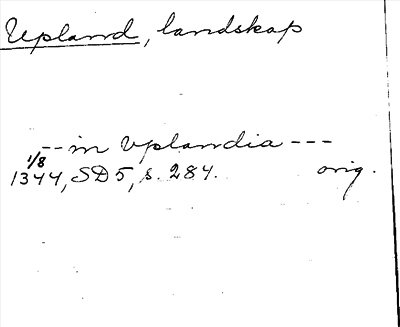 Upland, landskap
-- in Uplandia ---
1/8
1344, SD 5, s. 284. orig.